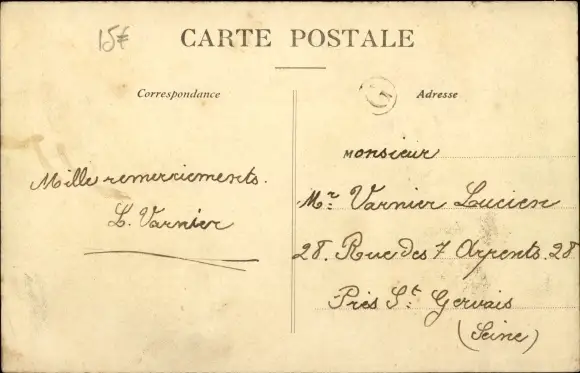 15€
CARTE POSTALE
Correspondance
G
Adresse
Mille remerciements.
L. Varnier
Monsieur
Mr: Varnier Lucien
28. Rue des 7 Arpents. 28
Près St. Gervais
(Seine)